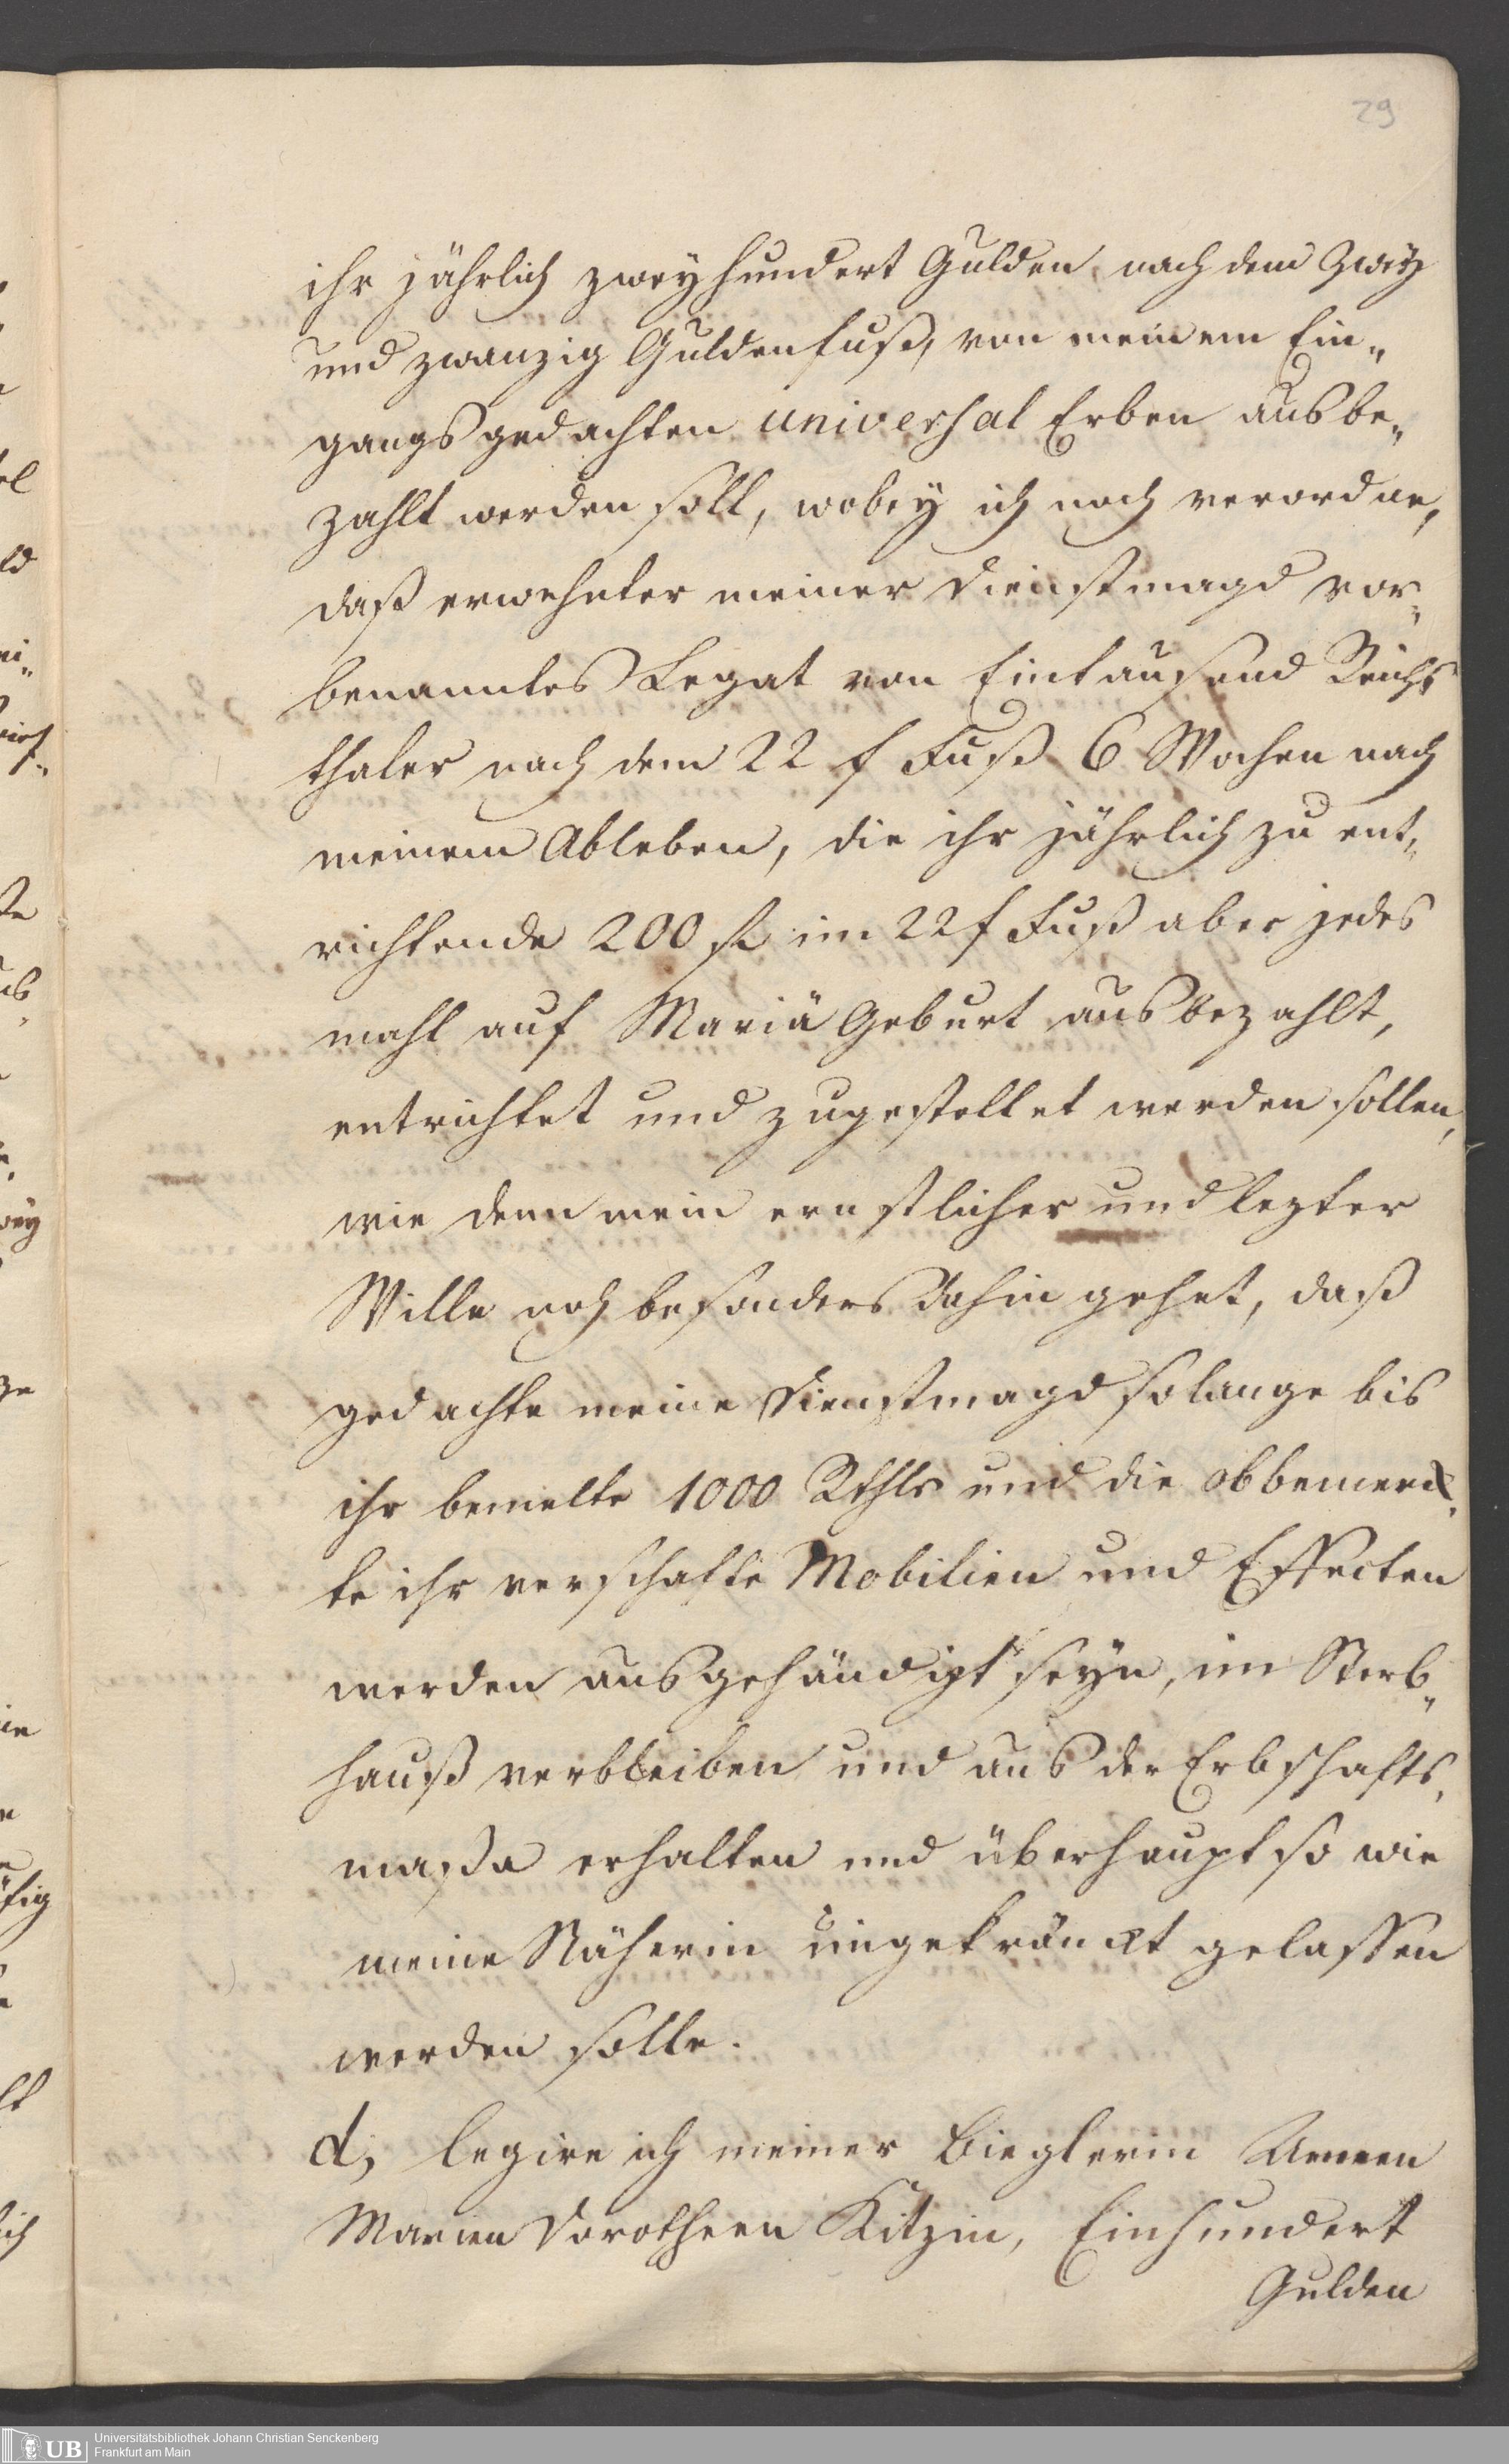 29
ihr jährlich zweyhundert Gulden nach dem Zwey
und zwanzig Guldenfuß, von meinem Ein„
gangs gedachten universal Erben ausbe„
zahlt werden soll, wobey ich noch verordne,
daß erwehnter meiner Dienstmagd vor„
benanntes Legat von Eintausend Reichs
thaler nach dem 22 f Fuß 6 Wochen nach
meinem Ableben, die ihr jährlich zu ent„
richtende 200 fl im 22 f Fuß aber jedes
mahl auf Mariä Geburt ausbezahlt,
entrichtet und zugestellet werden sollen,
wie denn mein ernstlicher und lezter
Wille noch besonders dahin gehet, daß
gedachte meine Dienstmagd solange bis
ihr bemelte 1000 Rthlr und die obbemerck„
te ihr verschafte Mobilien und Effecten
werden ausgehändigt seyn, im Sterb„
hauß verbleiben und aus der Erbschafts„
massa erhalten und überhaupt so wie
meine Näherin ungekränckt gelassen
werden solle.
d, legire ich meiner Bieglerin Annen
Marien Dorotheen Kitzin, Einhundert
Gulden
UB Universitätsbibliothek Johann Christian Senckenberg
Frankfurt am Main